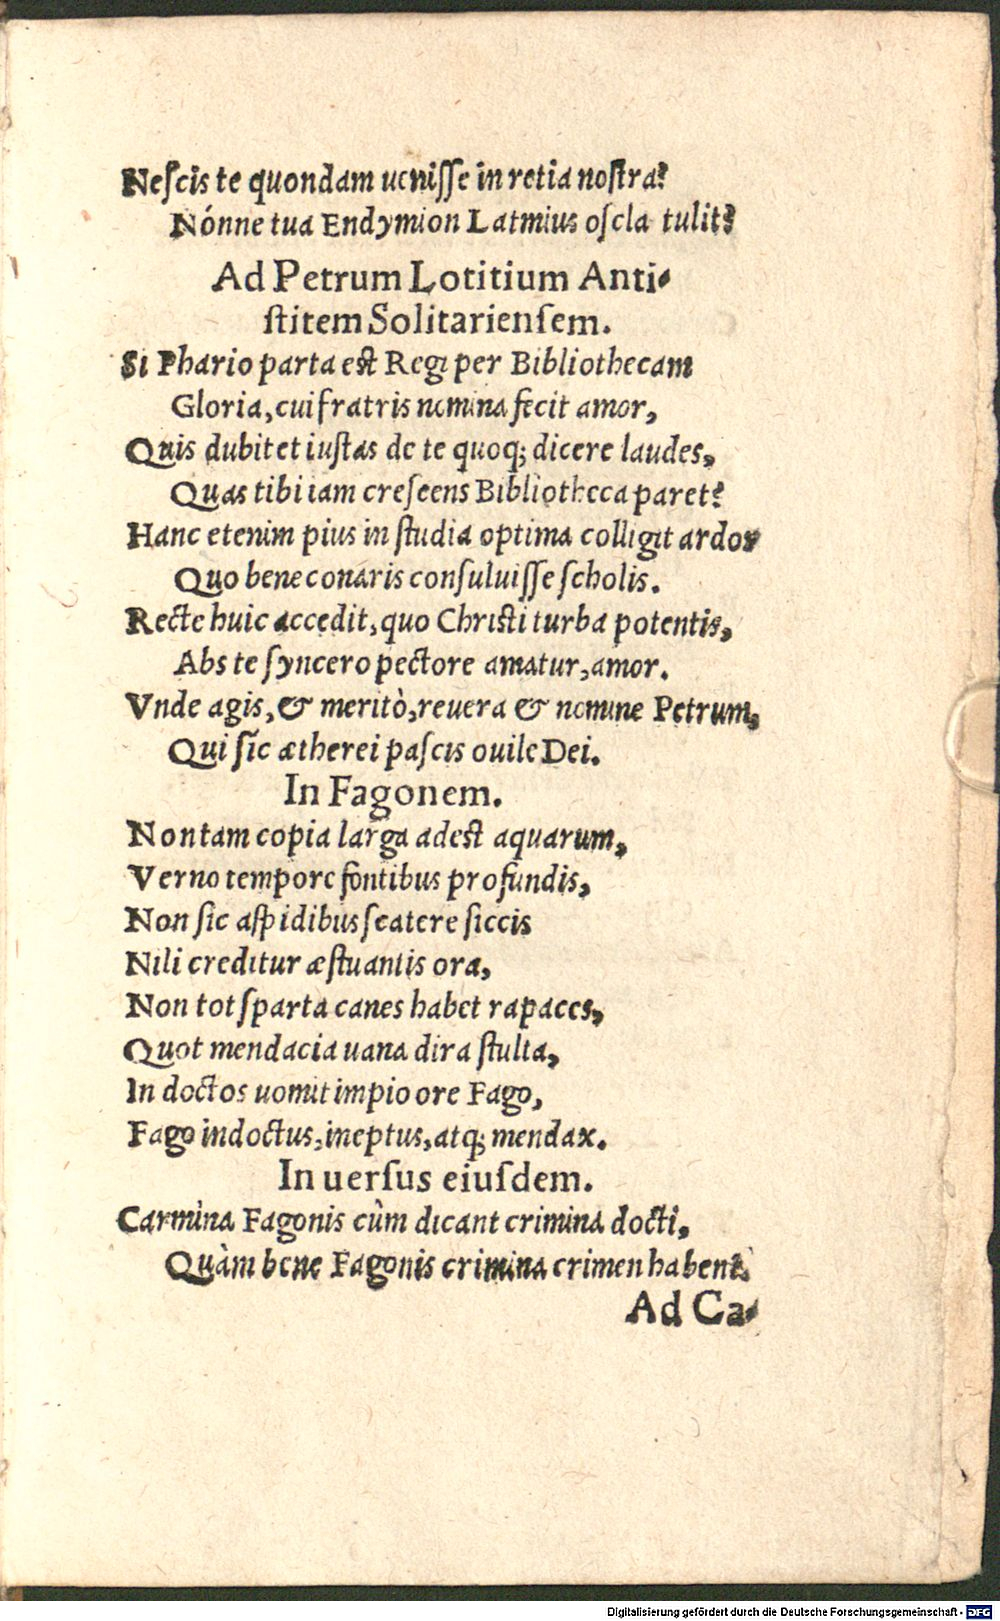 Neſcis te quondam ueniſſe in retia noſtra?
Nónne tua Endymion Latmius oſcla tulit?
Ad Petrum Lotitium Anti-
ſtitem Solitarienſem.
Si Phario parta eſt Regi per Bibliothecam
Gloria, cui fratris nomina fecit amor,
Quis dubitet iuſtas de te quoq; dicere laudes,
Quas tibi iam creſeens Bibliotheca paret?
Hanc etenim pius in ſtudia optima colligit ardor
Quo bene conaris conſuluiſſe ſcholis.
Recte huic accedit, quo Chriſti turba potentis,
Abs te ſyncero pectore amatur, amor.
Vnde agis, & meritò, reuera & nomine Petrum,
Qui ſic ætherei paſcis ouile Dei.
In Fagonem.
Non tam copia larga adeſt aquarum,
Verno tempore fontibus profundis,
Non ſic aſpidibus ſcatere ſiccis
Nili creditur æſtuantis ora,
Non tot ſparta canes habet rapaces,
Quot mendacia uana dira ſtulta,
In doctos uomit impio ore Fago,
Fago indoctus, ineptus, atq; mendax.
In uerſus eiuſdem.
Carmina Fagonis cûm dicant crimina docti,
Quàm bene Fagonis crimina crimen habent.
Ad Ca-
Digitalisierung gefördert durch die Deutsche Forschungsgemeinschaft - DFG